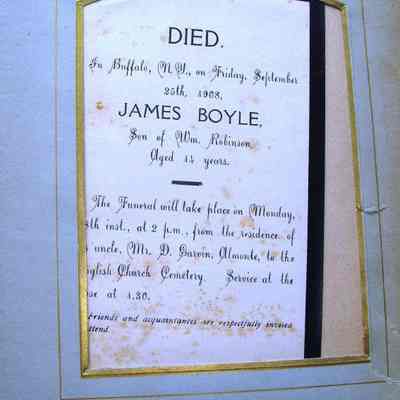 DIED.
In Buffalo, N.Y., on Friday, September
25th, 1908,
JAMES BOYLE,
Son of Wm. Robinson
Aged 14 years.
The Funeral will take place on Monday,
8th inst., at 2 p.m., from the residence of
uncle, Mr. D. Garvin, Almonte, to the
glish Church Cemetery. Service at the
se at 1.30.
Friends and acquaintances are respectfully invited
attend.